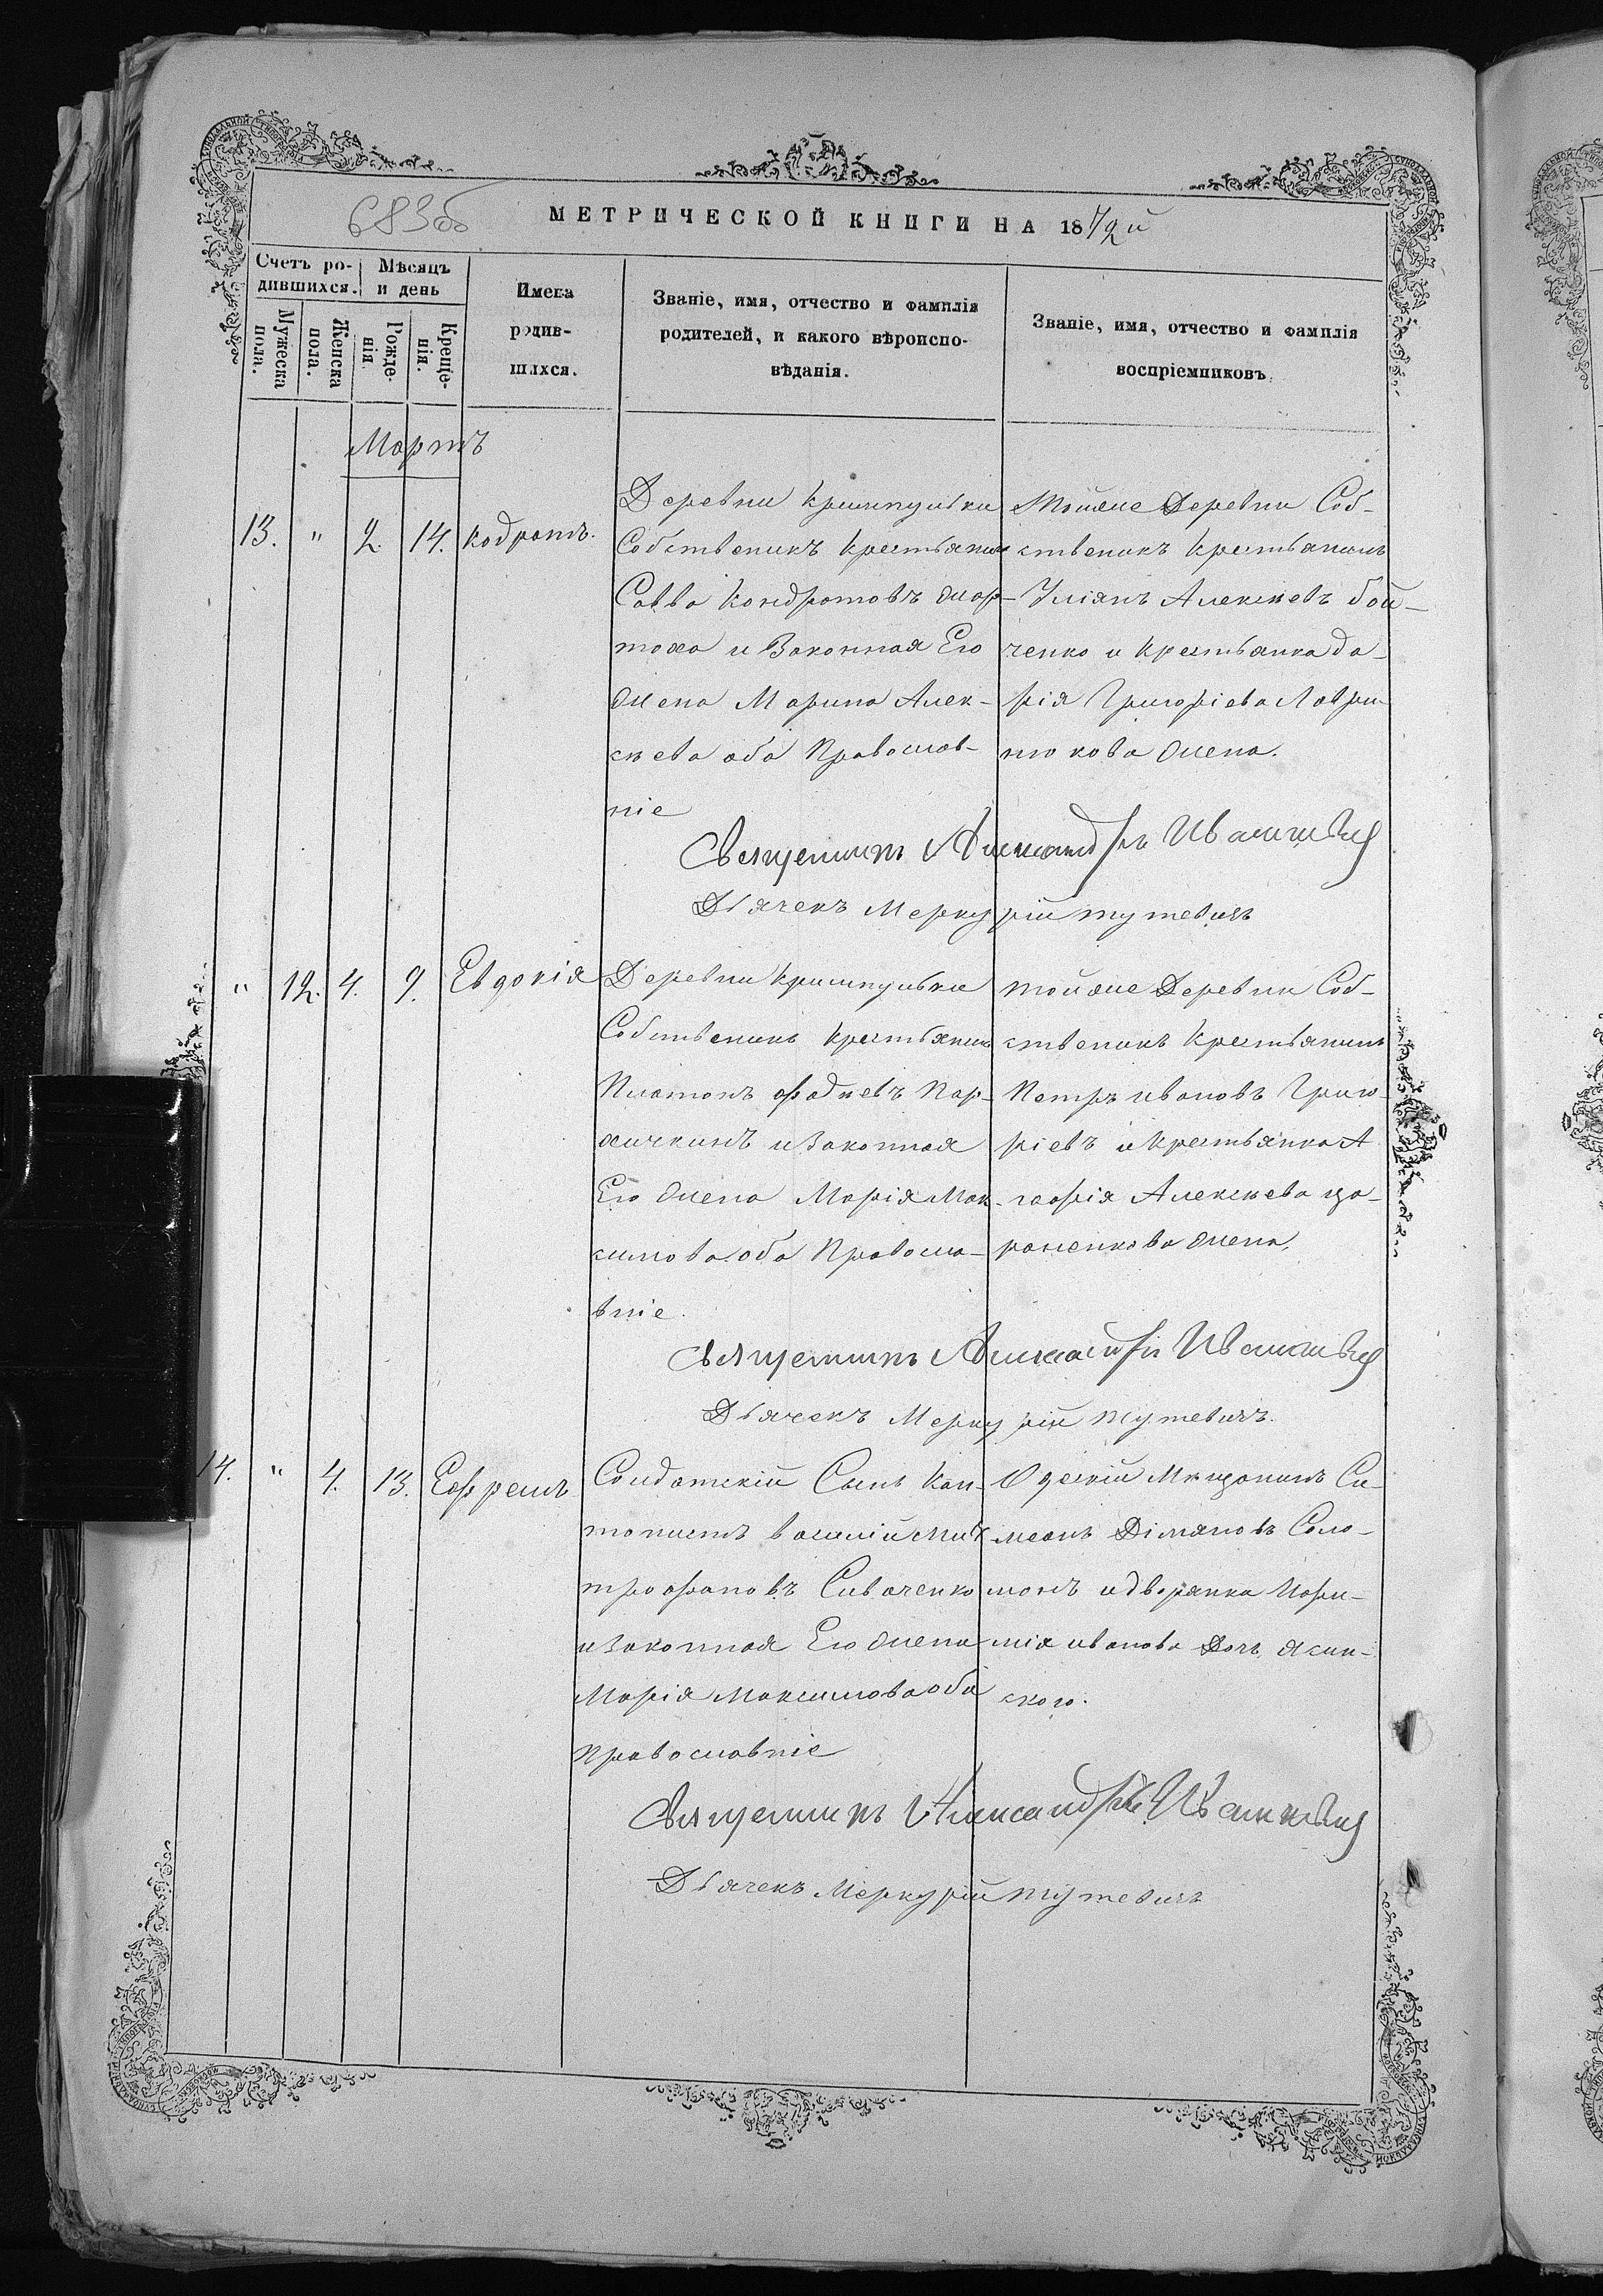 683об
МЕТРИЧЕСКОЙ КНИГИ НА 1872й
Счетъ ро-
дившихся.
Мѣсяцъ
и день
Мужеска
пола.
Женска
пола.
Рожде-
нія
Креще-
нія.
Имена
родив-
шихся.
Званіе, имя, отчество и фамилія
родителей, и какого вѣроиспо-
вѣданія.
Званіе, имя, отчество и фамилія
воспріемниковъ.
Мартъ
13. " 2. 14. Кодратъ.
Деревни
Собственикъ Крестьянинъ
Савва Кондратовъ
и Законная Его
жена Марина Алек-
сѣева оба Православ-
ніе
Тойже Деревни Соб-
ственикъ Крестьянинъ
Уліянъ Алексѣевъ бой-
ченко и Крестьянка Да-
рія Григоріева Лаври-
нюкова жена.
Священникъ Александръ
Дьячекъ Меркурій Тутевичъ
" 12. 4. 9. Евдокія
Деревни
Собственикъ Крестьянинъ
Платонъ Фадѣевъ Пар-
и Законная
Его жена Марія Мак-
симова оба Правосла-
вніе.
тойже Деревни Соб-
ственикъ Крестьянинъ
Петръ ивановъ Григо-
ріевъ и Крестьянка А
гафія Алексѣева
жена.
Священникъ Александръ
Дьячекъ Меркурій Тутевичъ.
14. " 4. 13. Ефремъ
Солдатскій Сынъ Кан-
тонистъ Василій Ми-
трофановъ Сиваченко
и Законная Его жена
Марія Максимова оба
Православніе
Одескій Мѣщанинъ Си-
меонъ Дімяновъ Соло-
монъ и дворянка Иофи-
мія иванова Дочь Ясин-
ского.
Священникъ Александръ
Дьячекъ Меркурій Тутевичъ